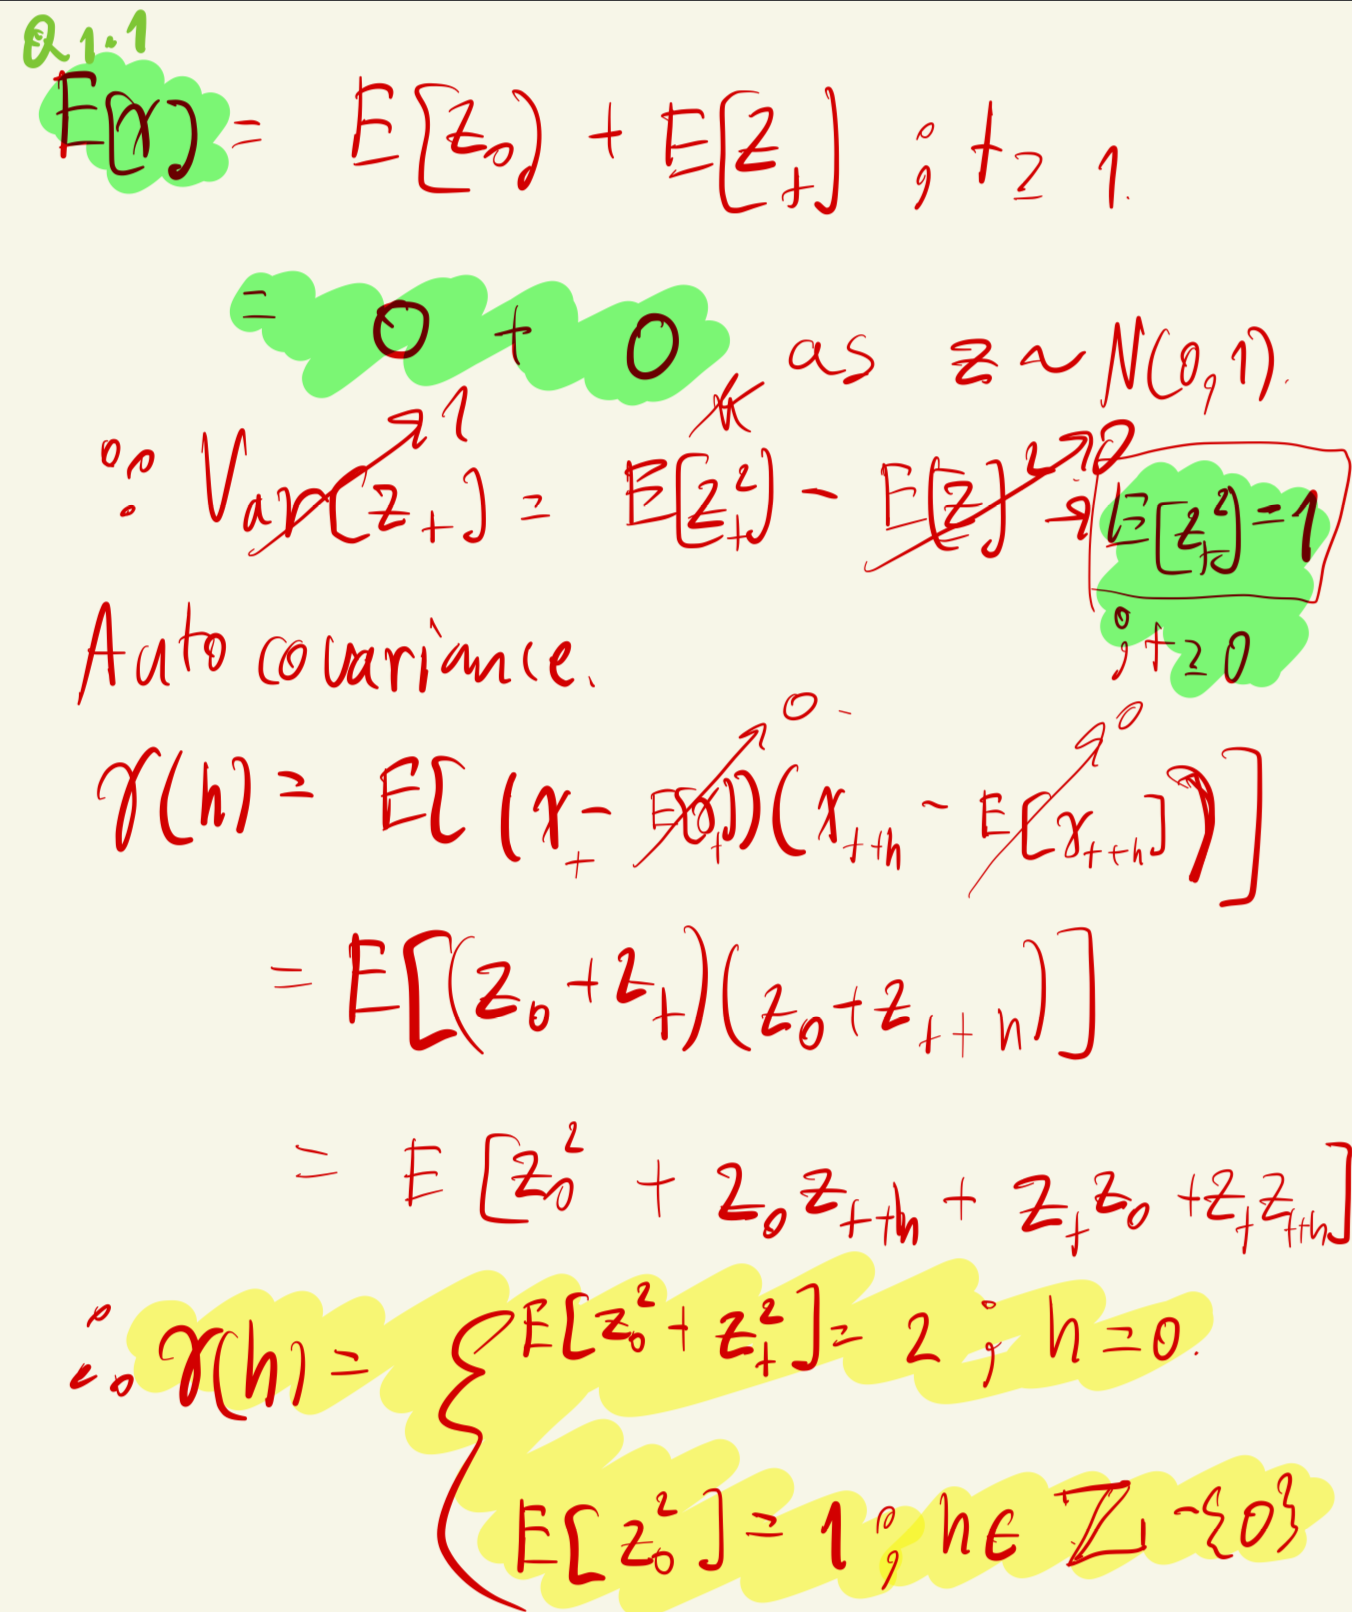 Q1.1
E[x] = E[z₀] + E[z_t] ; t ≥ 1.
= 0 + 0 as z ~ N(0,1).
∵ Var[z_t] = E[z_t²] - E[z]² → E[z_t²] = 1
1 0
; t ≥ 0
Auto covariance.
0 0
γ(h) = E[(x_t - E[x_t])(x_{t+h} - E[x_{t+h}])]
= E[(z₀ + z_t)(z₀ + z_{t+h})]
= E[z₀² + z₀z_{t+h} + z_t z₀ + z_t z_{t+h}]
∴ γ(h) = { E[z₀² + z_t²] = 2 ; h = 0.
E[z₀²] = 1 ; h ∈ ℤ - {0}